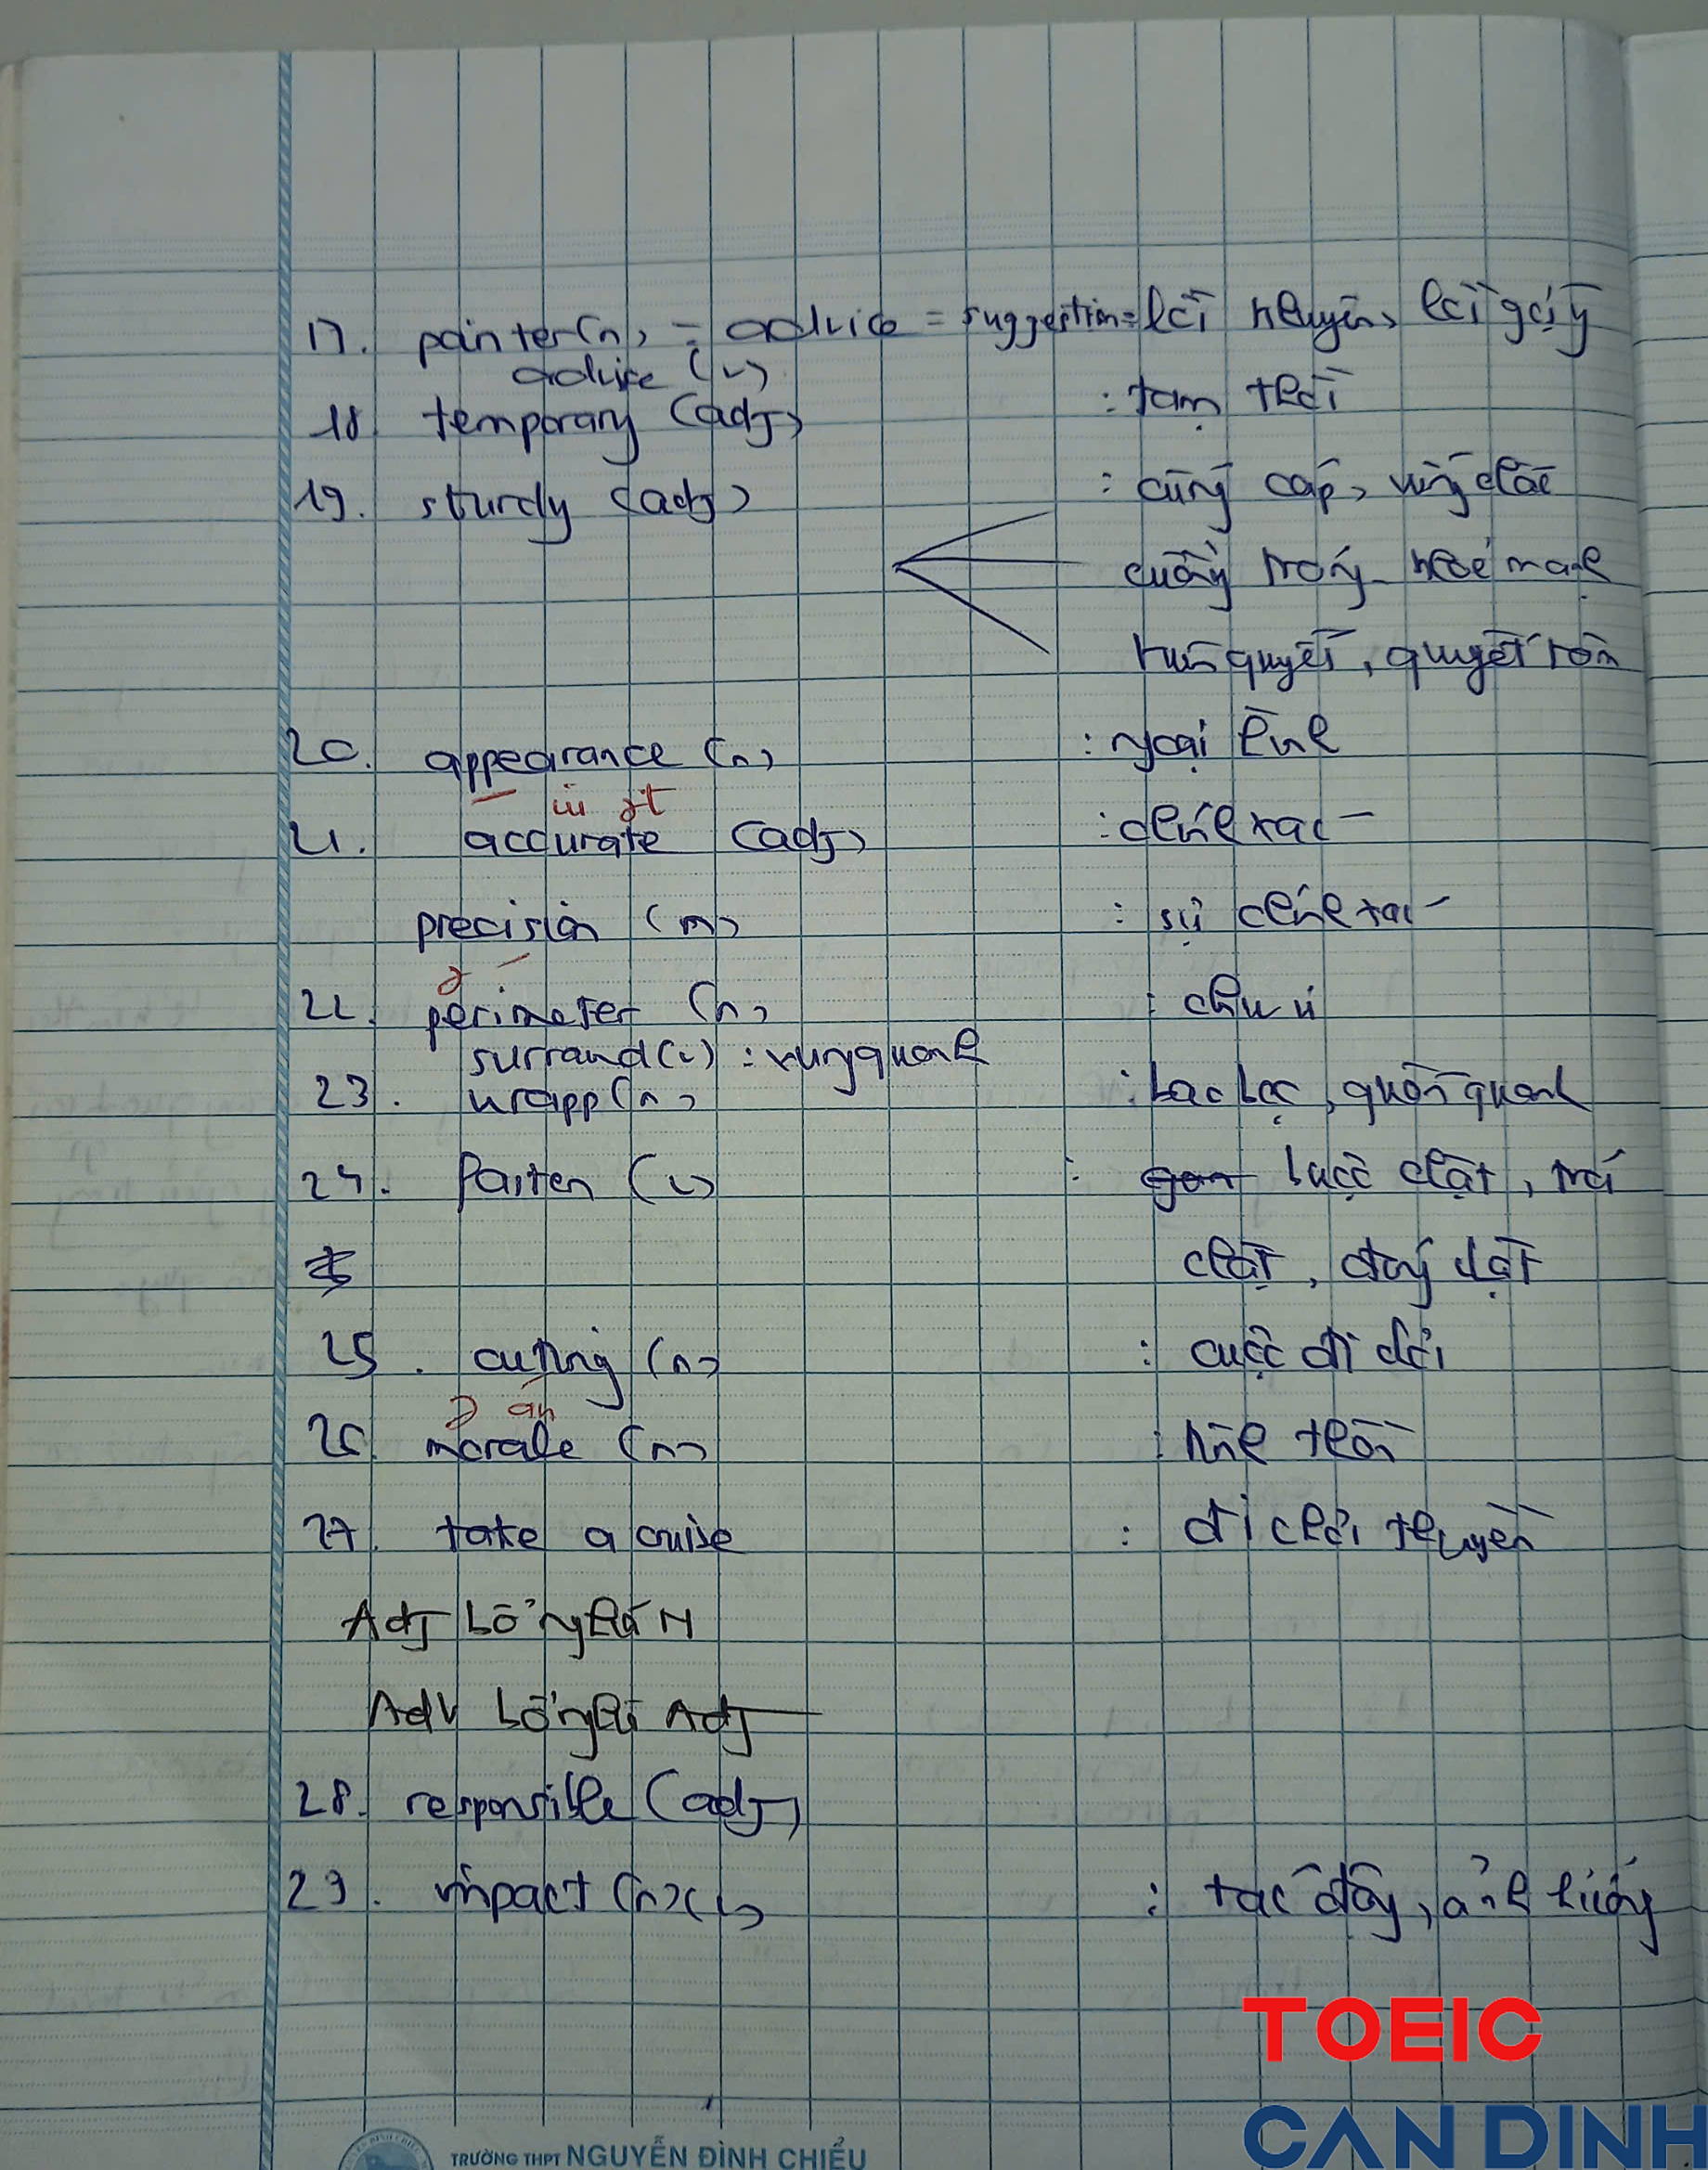 17. pointer (n) = advice = suggestion = lời khuyên, lời gợi ý
advise (v)
18. temporary (adj) : tạm thời
19. sturdy (adj) : cứng cáp, vững chắc
cường tráng, khoẻ mạnh
kiên quyết, quyết tâm
20. appearance (n) : ngoại hình
21. accurate (adj) : chính xác
precision (n) : sự chính xác
22. perimeter (n) : chu vi
surround (v) : xung quanh
23. wrapp (n) : bao bọc, quấn quanh
24. fasten (v) : buộc chặt, trói
chặt, đóng chặt
25. outing (n) : cuộc đi chơi
ə an
26. morale (n) : tinh thần
27. take a cruise : đi chơi thuyền
Adj bổ nghĩa N
Adv bổ nghĩa Adj
28. responsible (adj)
29. impact (n) (v) : tác động, ảnh hưởng
TOEIC
CAN DINH
TRƯỜNG THPT NGUYỄN ĐÌNH CHIỂU